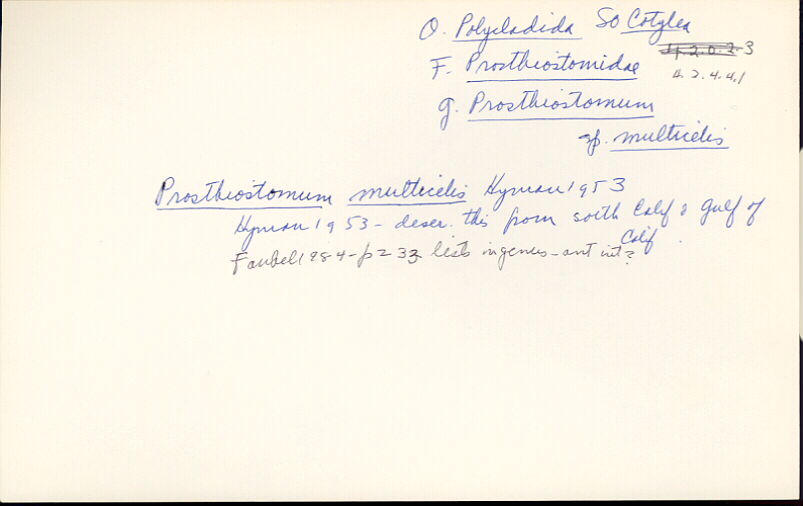 O. Polycladida SO Cotylea
4.2.0.2-3
F. Prostheostomidae
4.2.4.4.1
g. Prostheostomum
sp. multicelis
Prostheostomum multicelis Hyman 1953
Hyman 1953 - descr. this from south Calif & Gulf of
Calif.
Faubel 1984 - p 233 lists in genus - ant int?